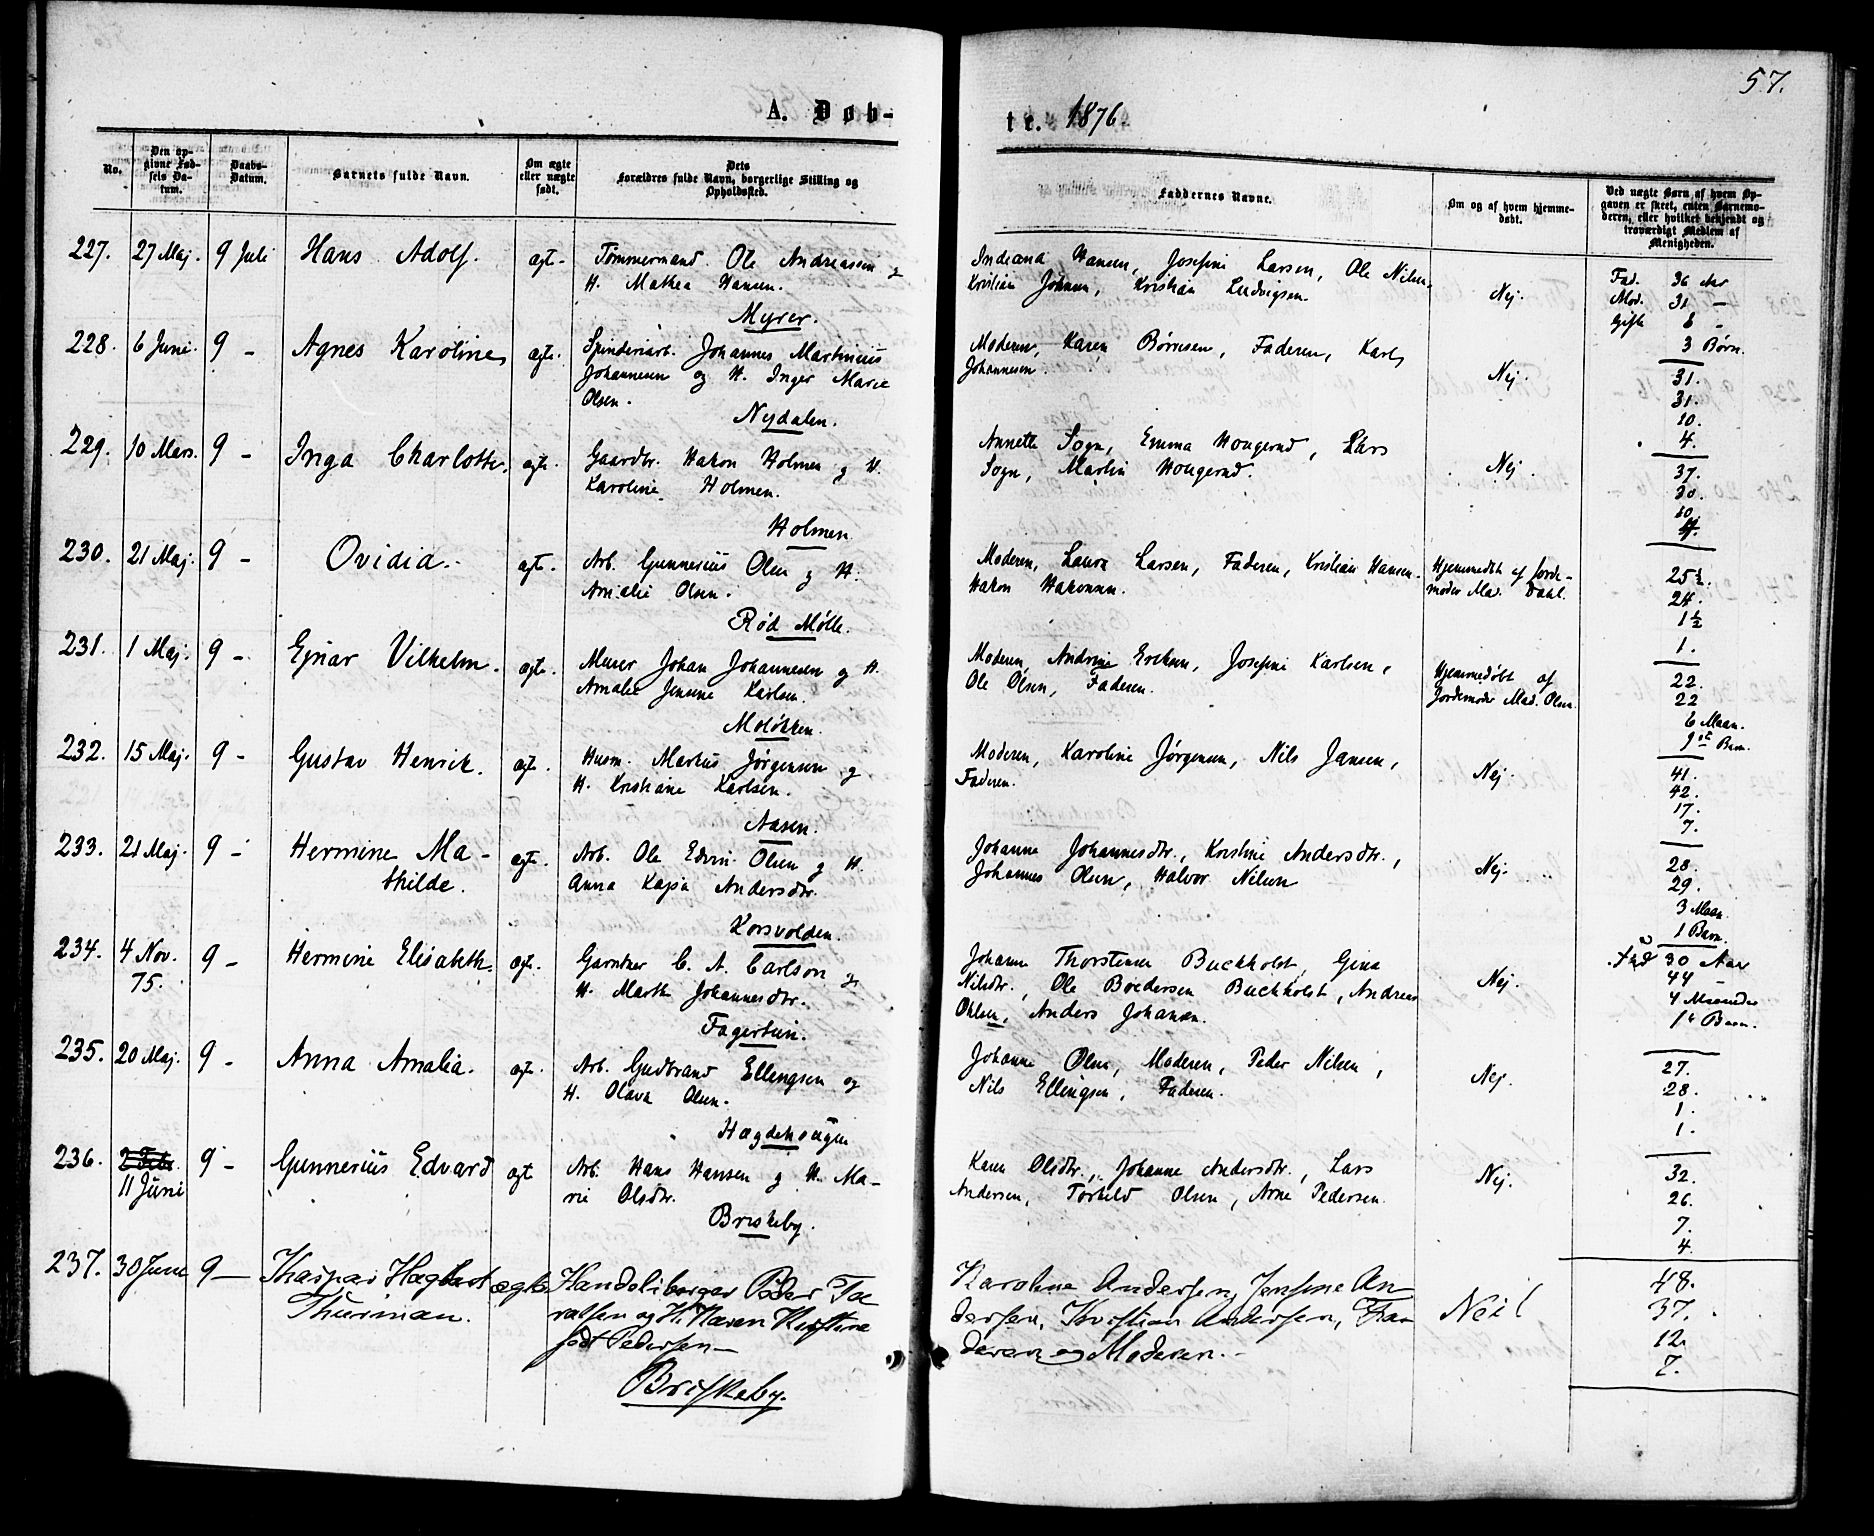 57.
A. Døb-
te. 1876
No.
Den op-
givne Fød-
sels Da-
tum.
Daabs-
Datum.
Barnets fulde Navn.
Om ægte
eller uægte
født.
Dets
Forældres fulde Navn, borgerlige Stilling og
Opholdssted.
Faddernes Navne.
Om og af hvem hjemme-
døbt.
Ved uægte Børn af hvem Op-
gaven er skeet, enten Barnemo-
deren, eller hvilket bekjendt og
troværdigt Medlem af
Menigheden.
227. 27 Maj. 9 Juli Hans Adolf. ægte. Tømmermand Ole Andreassen og
H. Mathea Hansen.
Myrer.
Indiana Hansen, Josefine Larsen, Ole Nilsen,
Kristian Johnsen, Kristian Ludvigsen.
Nej.
Fad. 36 Aar
Mod. 31 –
Gifte 8 –
3 Børn.
228. 6 Juni. 9 – Agnes Karoline ægte. Spinderiarb. Johannes Martinius
Johannesen og H. Inger Marie
Olsen.
Nydalen.
Moderen, Karen Børresen, Faderen, Karl
Johannesen.
Nej.
31.
31.
10.
4.
229. 10 Mars. 9 – Inga Charlotte. ægte. Gaardbr. Hakon Holmen og H.
Karoline Holmen.
Holmen.
Annette Sogn, Emma Hougerud, Lars
Sogn, Martin Hougerud.
Nej.
37.
30.
10.
4.
230. 21 Maj. 9 – Ovidia. ægte. Arb. Gunnerius Olsen og H.
Amalie Olsen.
Rød Mølle.
Moderen, Laura Larsen, Faderen, Kristian Hansen,
Hakon Hakonsen.
Hjemmedøbt af Jorde-
moder Mad. Dahl.
25½.
24.
1½
1.
231. 1 Maj. 9 – Ejnar Vilhelm. ægte. Murer Johan Johannesen og H.
Amalie Jensine Karlsen.
Moløkken.
Moderen, Andrine Eriksen, Josefine Karlsen,
Ole Olsen, Faderen.
Hjemmedøbt af
Jordemoder Mad. Olsen.
22.
22
6 Maan.
1ste Barn.
232. 15 Maj. 9 – Gustav Henrik. ægte. Husm. Markus Jørgensen og
H. Kristiane Karlsen.
Aasen.
Moderen, Karoline Jørgensen, Nils Jansen,
Faderen.
Nej.
41.
42.
17.
7.
233. 21 Maj. 9 – Hermine Ma-
thilde. ægte. Arb. Ole Edvin Olsen og H.
Anna Kajsa Andersdtr.
Korsvolden.
Johanne Johannesdtr., Kristine Andersdtr.,
Johannes Olsen, Halvor Nilsen
Nej.
28.
29.
3 Maan.
1 Barn.
234. 4 Nov.
75. 9 – Hermine Elisabeth. ægte. Gartner C. A. Carlson og
H. Marth Johannesdtr.
Fagertun.
Johanne Thorstensen Buckholst, Gina
Nilsdtr., Ole Boedersen Buckholst, Andreas
Ohlsen, Anders Johansen.
Nej.
Fad 30 Aar
44 –
4 Maaneder
1ste Barn.
235. 20 Maj. 9 – Anna Amalia. ægte. Arb. Gudbrand Ellingsen og
H. Olava Olsen.
Hægdehougen
Johanne Olsen, Moderen, Peder Nilsen,
Nils Ellingsen, Faderen.
Nej.
27.
28.
1.
1.
236. 11 Juni 9 – Gunnerius Edvard ægte Arb. Hans Hansen og H. Ma-
rie Olsdtr.
Briskeby.
Karen Olsdtr., Johanne Andersdtr., Lars
Andersen, Torkild Olsen, Arne Pedersen.
Nej.
32.
26.
7.
4.
237. 30 June 9 – Khaspar Hagbart
Thurman. ægte Handelsborger Peder To
ralfsen og H. Karen Kirstine
født Pedersen –
Briskeby.
Karoline Andersen, Jensine An
dersen, Kristian Andersen, Fa
deren og Moderen.
Nei
48.
37.
12.
7.